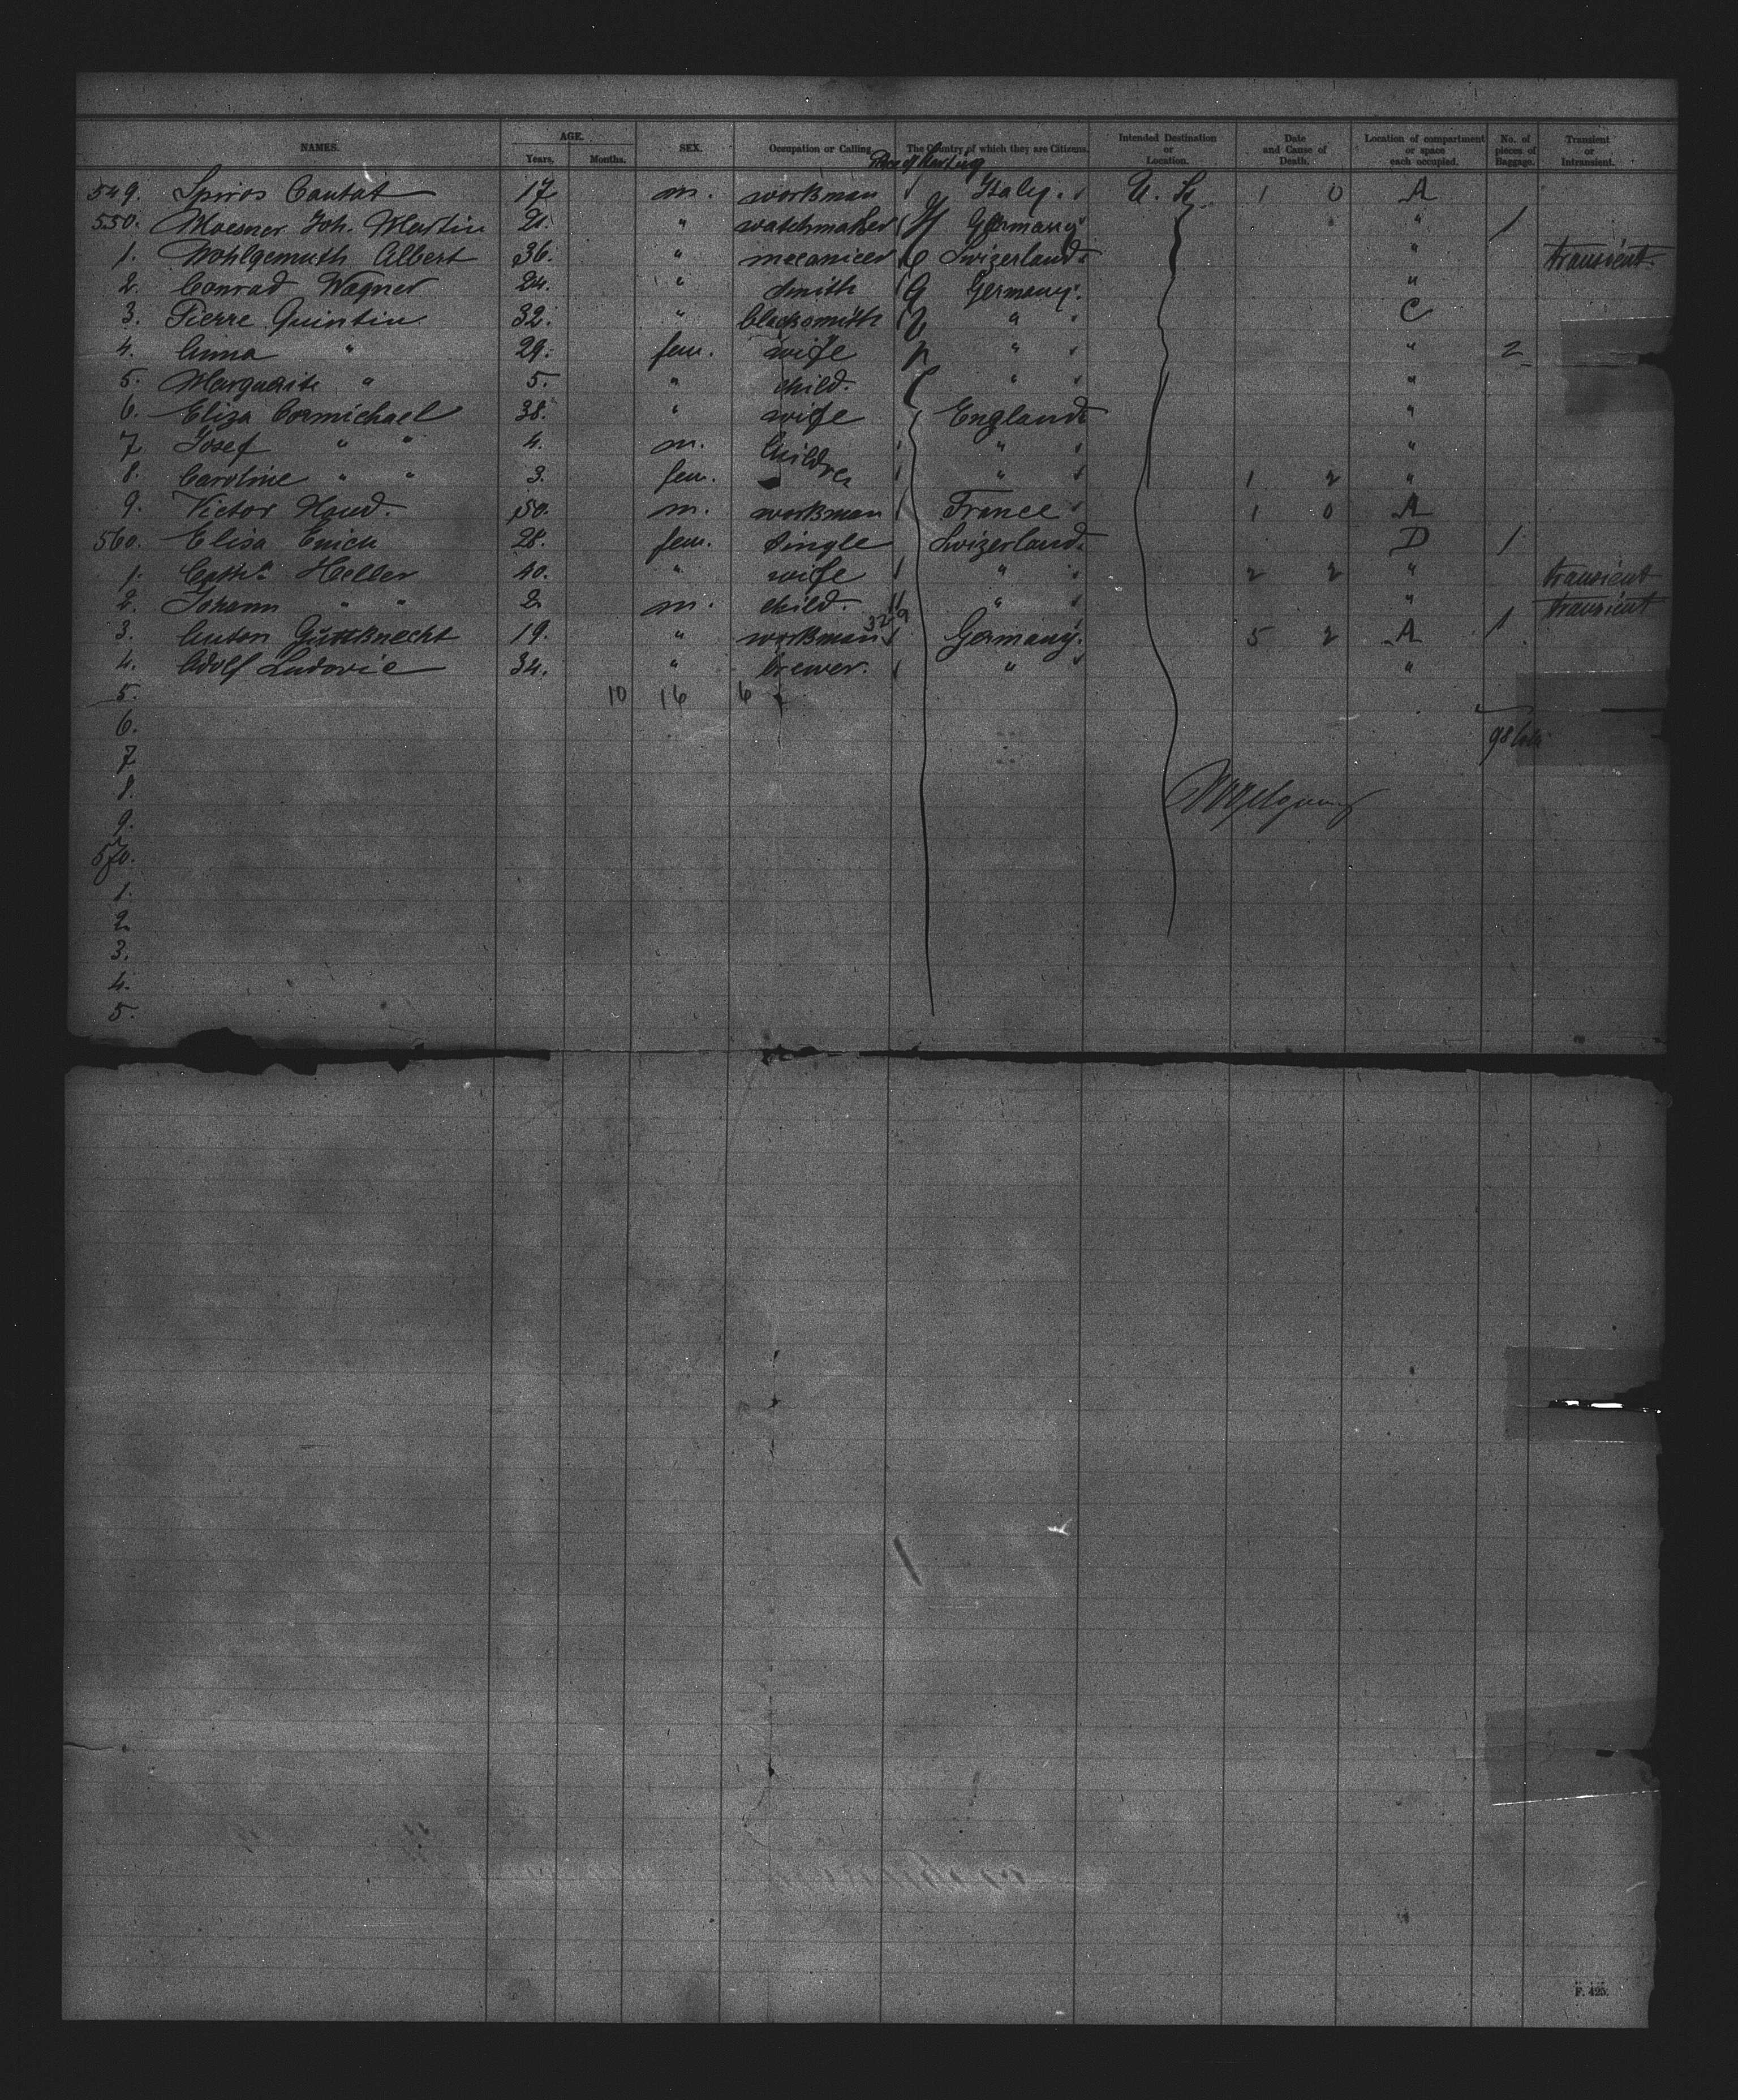 NAMES. AGE. Years. Months. SEX. Occupation or Calling. The Country of which they are Citizens. Intended Destination or Location. Date and Cause of Death. Location of compartment or space each occupied. No. of pieces of Baggage. Transient or Intransient.
549. Spiros Cantat 17 m. workman Italy. U. S. 1 0 A
550. Moesner Joh. Martin 21. " watchmaker Germany " 1
1. Wohlgemuth Albert 36. " mecanicer Swizerland " transient
2. Conrad Wagner 24. " smith Germany. "
3. Pierre Quintin 32. " blacksmith " C
4. Anna " 29. fem. wife " " 2
5. Marguerite " 5. " child. " "
6. Eliza Cormichael 38. " wife England "
7 Josef " " 4. m. Children " "
8. Caroline " " 3. fem. " 1 2 "
9. Victor Haud. 50. m. workman France 1 0 A
560. Elisa Emch 28. fem. single Swizerland. D 1
1. Cath. Heller 40. " wife " 2 2 " transient
2. Johann " " 2 m. child. " " transient
3. Anton Guttknecht 19. " workman Germany. 5 2 A 1
4. Adolf Ludovic 34. " brewer. " "
5. 10 16 6
6. 98
7
8.
9.
570.
1.
2.
3.
4.
5.
F. 425.